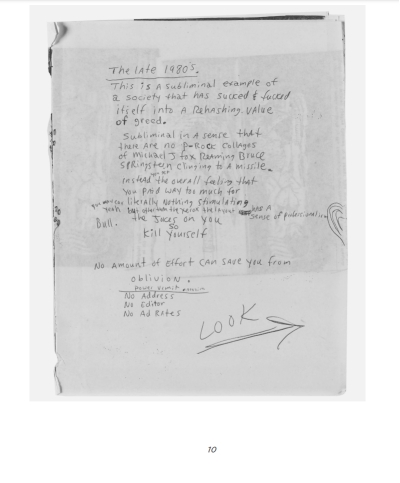 The late 1980's.
This is a subliminal example of
a society that has sucked & fucked
itself into a Rehashing value
of greed.
subliminal in a sense that
there are no P-Rock collages
of Michael J. fox Reaming Bruce
Springsteen clinging to a missile.
instead the overall feeling that
you paid way too much for
literally nothing stimulating
yeah has a
Bull. the Jokes on you sense of professionalism
so
Kill yourself
No amount of effort can save you from
oblivion.
No Address
No Editor
No Ad Rates
LOOK
10